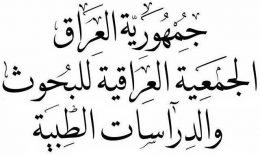 جُمْهُورِيَّة العِرَاق
الجَمعِية العِرَاقِية للبُحُوث
والدِرَاسَات الطِبِيَة